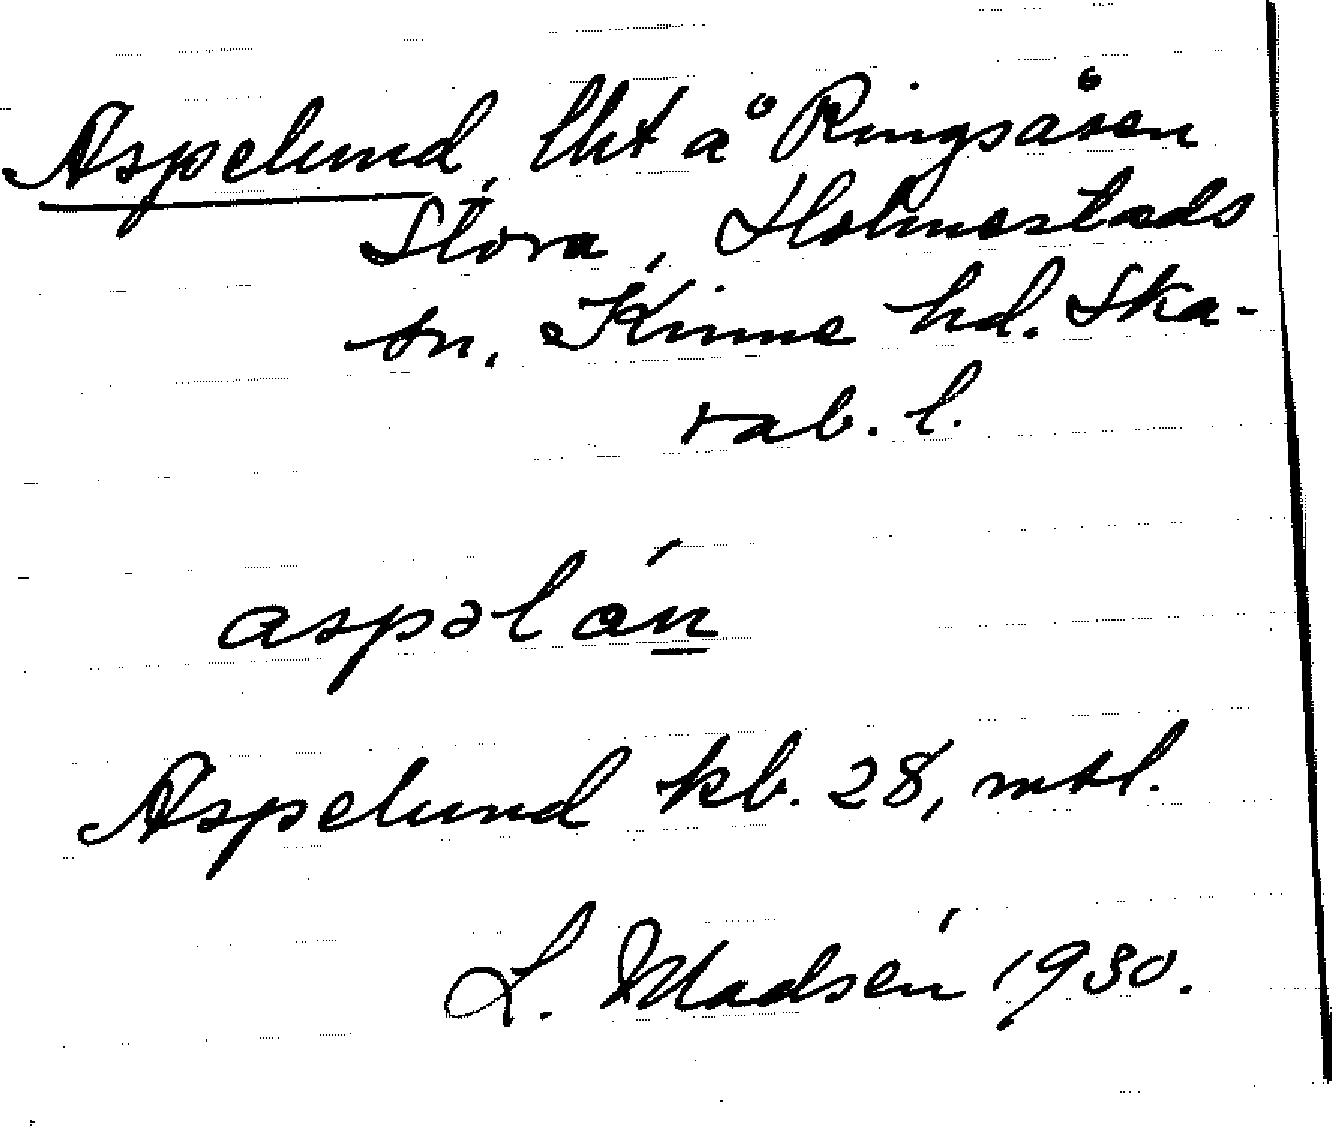 Aspelund, lht å Ringsåsen
Stora, Holmestads
sn. Kinne hd. Ska-
rab. l.
aspəlán
Aspelund kb. 28, mtl.
L. Madsén 1930.